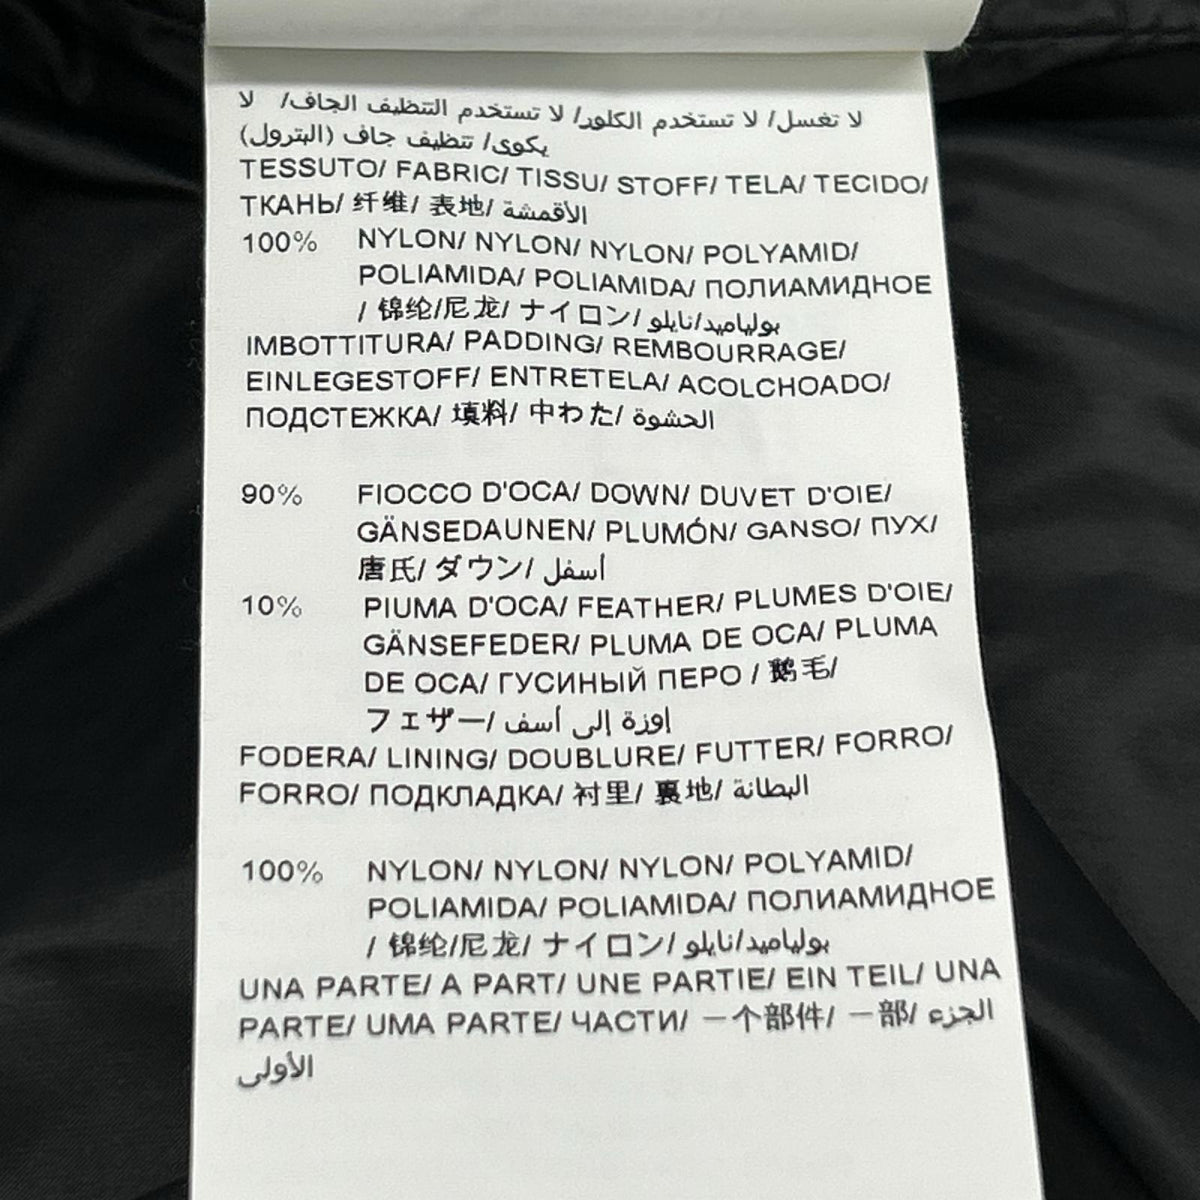 لا تغسل/ لا تستخدم الكلور/ لا تستخدم التنظيف الجاف/ لا
يكوى/ تنظيف جاف (البترول)
TESSUTO/ FABRIC/ TISSU/ STOFF/ TELA/ TECIDO/
ТКАНЬ/ 纤维/ 表地/ الأقمشة
100% NYLON/ NYLON/ NYLON/ POLYAMID/
POLIAMIDA/ POLIAMIDA/ ПОЛИАМИДНОЕ
/ 锦纶/尼龙/ ナイロン/ بولياميد/نايلو
IMBOTTITURA/ PADDING/ REMBOURRAGE/
EINLEGESTOFF/ ENTRETELA/ ACOLCHOADO/
ПОДСТЕЖКА/ 填料/ 中わた/ الحشوة
90% FIOCCO D'OCA/ DOWN/ DUVET D'OIE/
GÄNSEDAUNEN/ PLUMÓN/ GANSO/ ПУХ/
唐氏/ ダウン/ أسفل
10% PIUMA D'OCA/ FEATHER/ PLUMES D'OIE/
GÄNSEFEDER/ PLUMA DE OCA/ PLUMA
DE OCA/ ГУСИНЫЙ ПЕРО / 鹅毛/
フェザー/ اوزة إلى أسف
FODERA/ LINING/ DOUBLURE/ FUTTER/ FORRO/
FORRO/ ПОДКЛАДКА/ 衬里/ 裏地/ البطانة
100% NYLON/ NYLON/ NYLON/ POLYAMID/
POLIAMIDA/ POLIAMIDA/ ПОЛИАМИДНОЕ
/ 锦纶/尼龙/ ナイロン/ بولياميد/نايلو
UNA PARTE/ A PART/ UNE PARTIE/ EIN TEIL/ UNA
PARTE/ UMA PARTE/ ЧАСТИ/ 一个部件/ 一部/ الجزء
الأولى